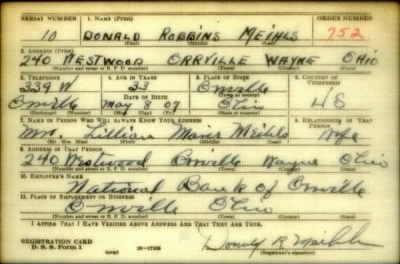 SERIAL NUMBER 1. NAME (Print) ORDER NUMBER
10 DONALD ROBBINS MEIHLS 752
(First) (Middle) (Last)
2. ADDRESS (Print)
240 WESTWOOD ORRVILLE WAYNE OHIO
(Number and street or R. F. D. number) (Town) (County) (State)
3. TELEPHONE 4. AGE IN YEARS 5. PLACE OF BIRTH 6. COUNTRY OF CITIZENSHIP
339 W 33 Orrville
DATE OF BIRTH
Orrville May 8 07 Ohio US
(Exchange) (Number) (Mo.) (Day) (Yr.) (State or country)
7. NAME OF PERSON WHO WILL ALWAYS KNOW YOUR ADDRESS 8. RELATIONSHIP OF THAT PERSON
Mrs. Lillian Meihls Wife
(Mr., Mrs., Miss) (First) (Middle) (Last)
9. ADDRESS OF THAT PERSON
240 Westwood Orrville Wayne Ohio
(Number and street or R. F. D. number) (Town) (County) (State)
10. EMPLOYER'S NAME
National Bank of Orrville
11. PLACE OF EMPLOYMENT OR BUSINESS
Orrville Ohio
(Number and street or R. F. D. number) (Town) (County) (State)
I AFFIRM THAT I HAVE VERIFIED ABOVE ANSWERS AND THAT THEY ARE TRUE.
REGISTRATION CARD
D. S. S. Form 1 Donald R Meihls
(Registrant's signature)